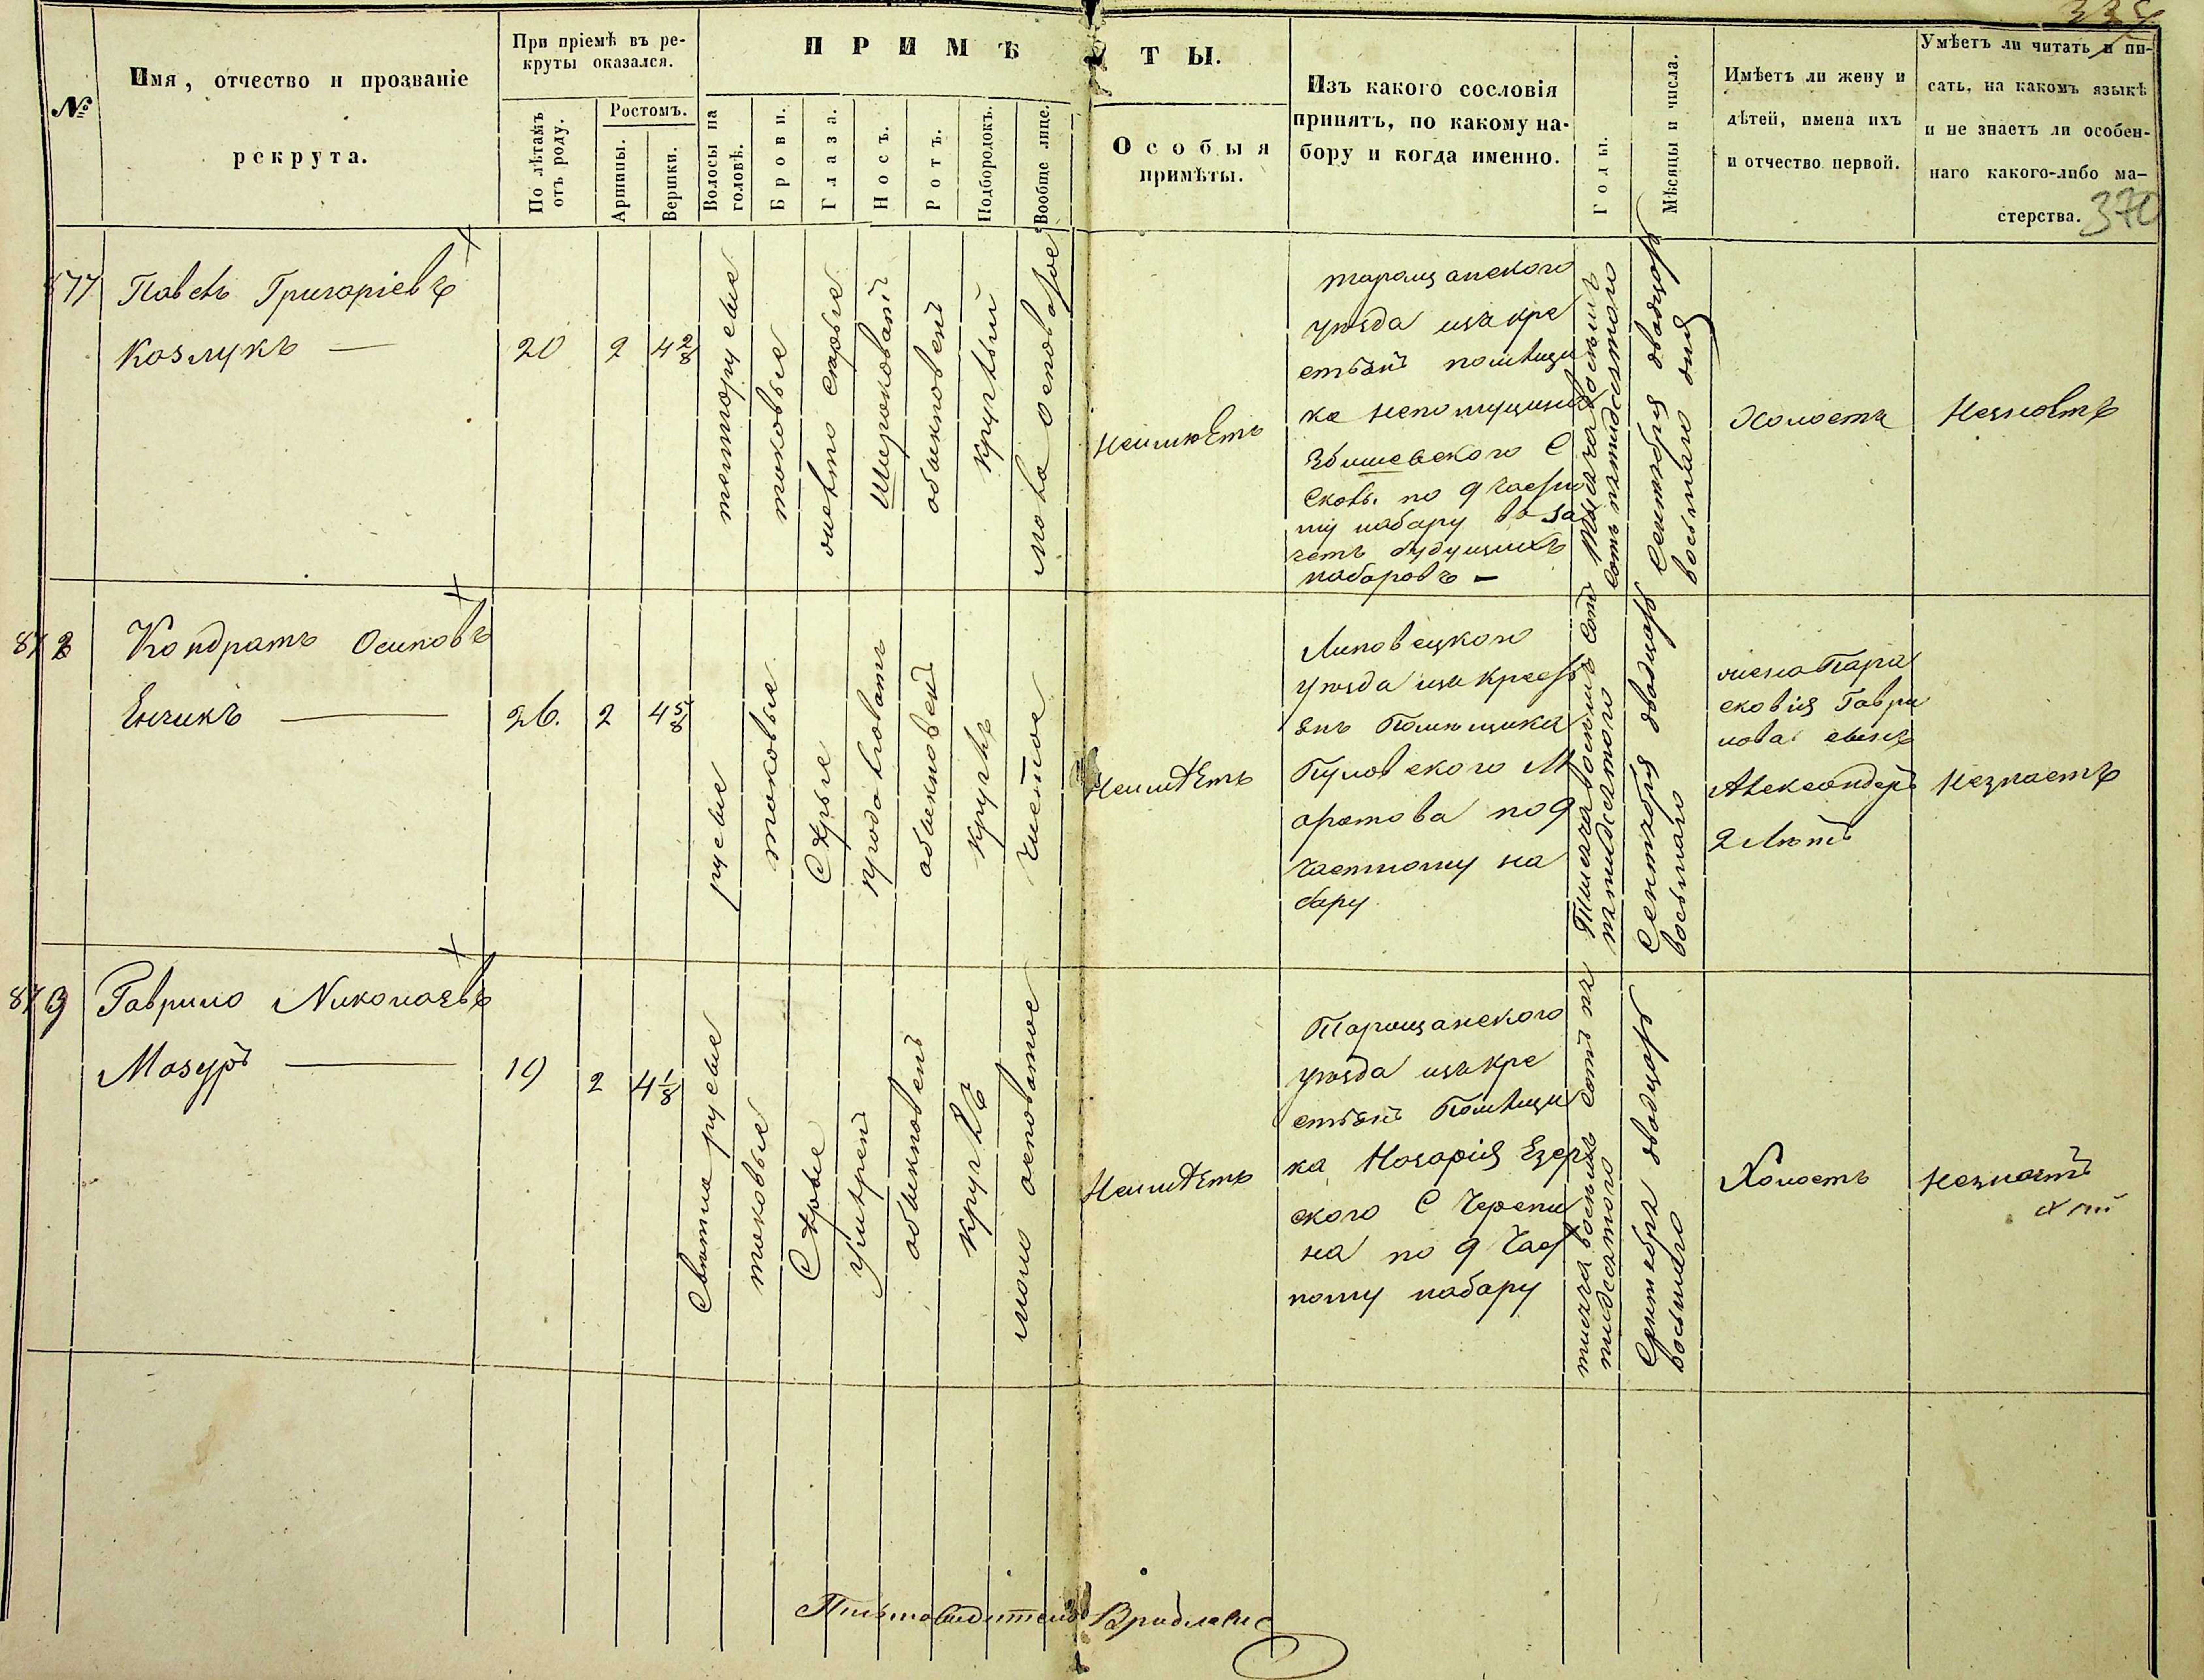 337
№
Имя, отчество и прозваніе
рекрута.
При пріемѣ въ ре-
круты оказался.
По лѣтамъ
отъ роду.
Ростомъ.
Аршины.
Вершки.
ПРИМѢТЫ.
Волосы на
головѣ.
Брови.
Глаза.
Носъ.
Ротъ.
Подбородокъ.
Вообще лице.
Особыя
примѣты.
Изъ какого сословія
принятъ, по какому на-
бору и когда именно.
Годы.
Мѣсяцы и числа.
Имѣетъ ли жену и
дѣтей, имена ихъ
и отчество первой.
Умѣетъ ли читать и пи-
сать, на какомъ языкѣ
и не знаетъ ли особен-
наго какого-либо ма-
стерства.
370
877
Павелъ Григоріевъ
Козлукъ —
20
2
4 2/8
темнорусые
таковые
широковатый
обыкновен
круглый
Неимѣетъ
таращанского
уѣзда изъ кре
стьянъ помѣщи
ка
С
по 9 частно
му набору въ за
четъ будущихъ
наборовъ —
Тысяча восемъ
сотъ пятидесятого
Сентября двадцать
восьмаго дня
Холостъ
Незнаетъ
878
Кондратъ Осиповъ
Енчикъ —
26.
2
4 5/8
русые
таковые
Сѣрые
продолговатъ
обыкновен
круглъ
чистое
Неимѣетъ
Липовецкого
уѣзда изъ крест
янъ Помѣщика
по 9
частному на
бору
Тысяча восемъ сотъ
пятидесятого
Сентября двадцать
восьмаго
жена Пара
сковія Гаври
лова сынъ
Александеръ
2 Лѣтъ
Незнаетъ
879
Гаврило Николаевъ
Мазуръ —
19
2
4 1/8
Свѣтла русые
таковые
Сѣрые
умѣрен
обыкновенъ
круглъ
мало осповатое
Неимѣетъ
Таращанского
уѣзда изъ кре
стьянъ Помѣщи
ка Назарія Езер
ского С Черепи
на по 9 част
ному набору
тысяча восемъ сотъ пя
тидесятого
Сентября двадцать
восьмаго
Холостъ
Незнаетъ
Письмоводитель